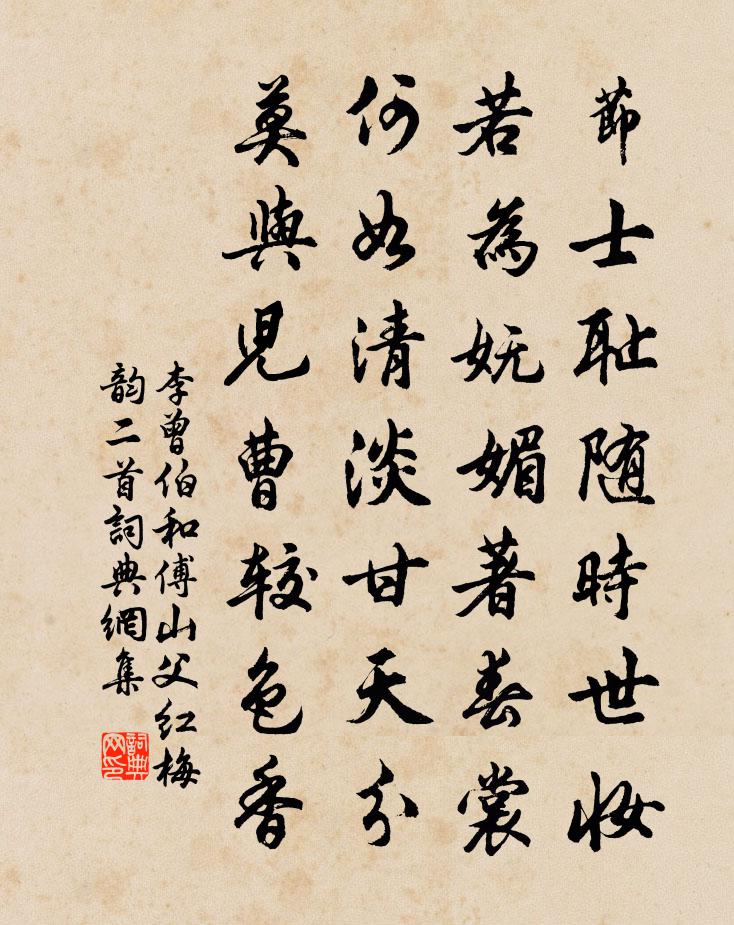 節士耻随時世妝
若為妩媚著春裳
何如清淡甘天分
莫與兒曹较色香
李曾伯和傅山父红梅
韵二首詞典網集
詞典网印